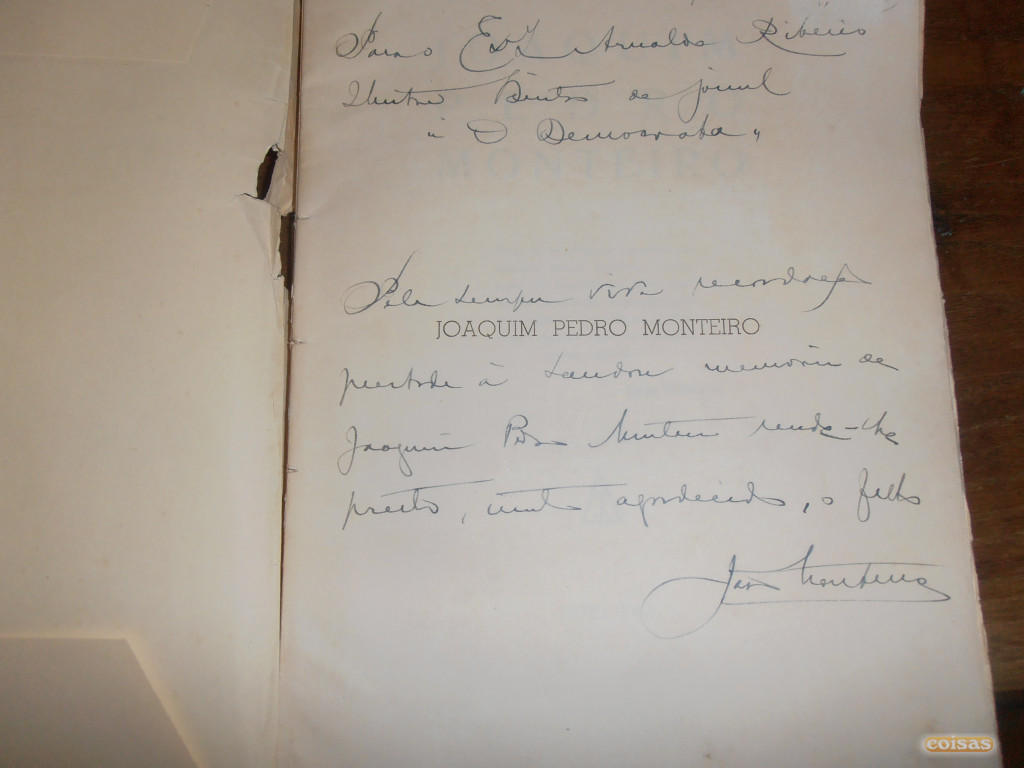 Para o Exº Sr Arnaldo Ribeiro
Ilustre Director do jornal
"O Democrata"
MONTEIRO
Pela sempre viva recordação
JOAQUIM PEDRO MONTEIRO
prestada à saudosa memória de
Joaquim Pedro Monteiro rende-lhe
preito, muito agradecido, o filho
Monteiro
coisas